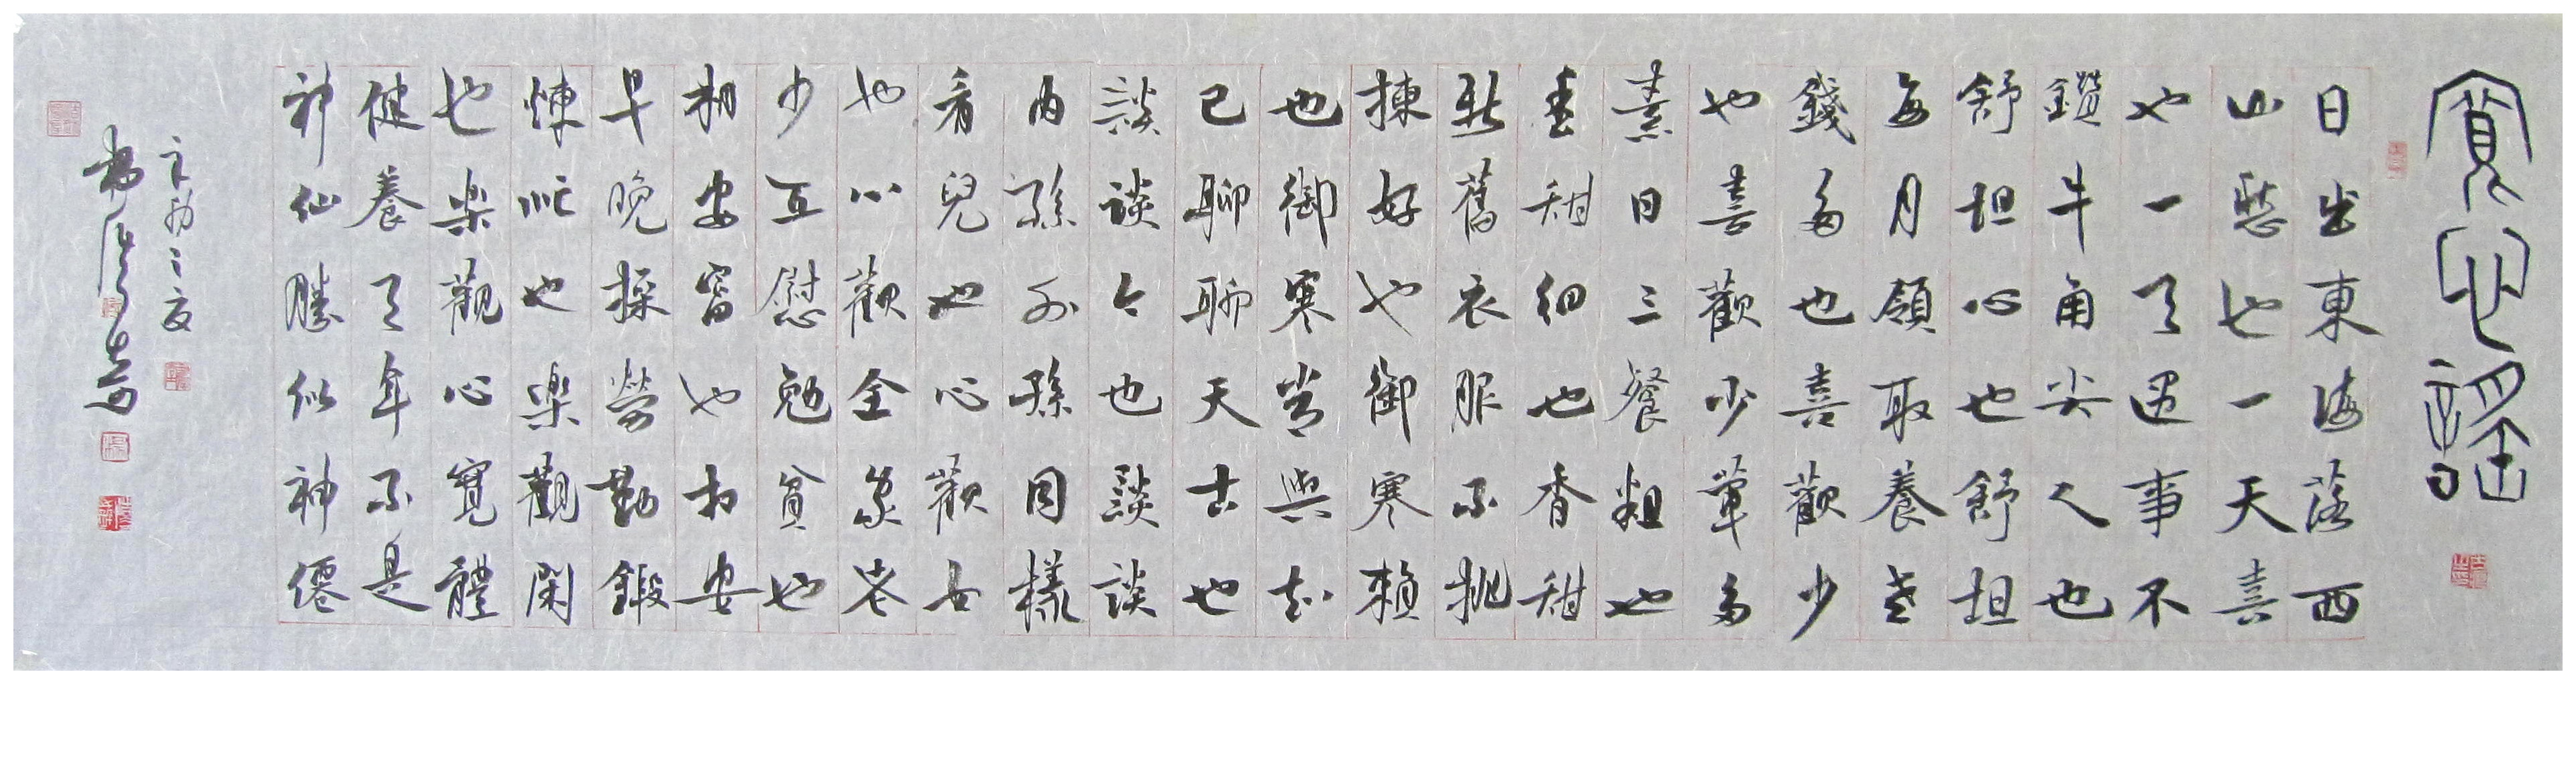 寬心謠
日出東海落西
山愁也一天喜
也一天遇事不
鑽牛角尖人也
舒坦心也舒坦
每月領取養老
錢多也喜歡少
也喜歡少葷多
素日三餐粗也
香甜細也香甜
新舊衣服不挑
揀好也御寒賴
也御寒常與知
已聊聊天古也
談談今也談談
內孫外孫同樣
看兒也心歡女
也心歡全家老
少互慰勉貧也
相安富也相安
早晚操勞勤鍛
煉忙也樂觀閑
也樂觀心寬體
健養天年不是
神仙勝似神僊